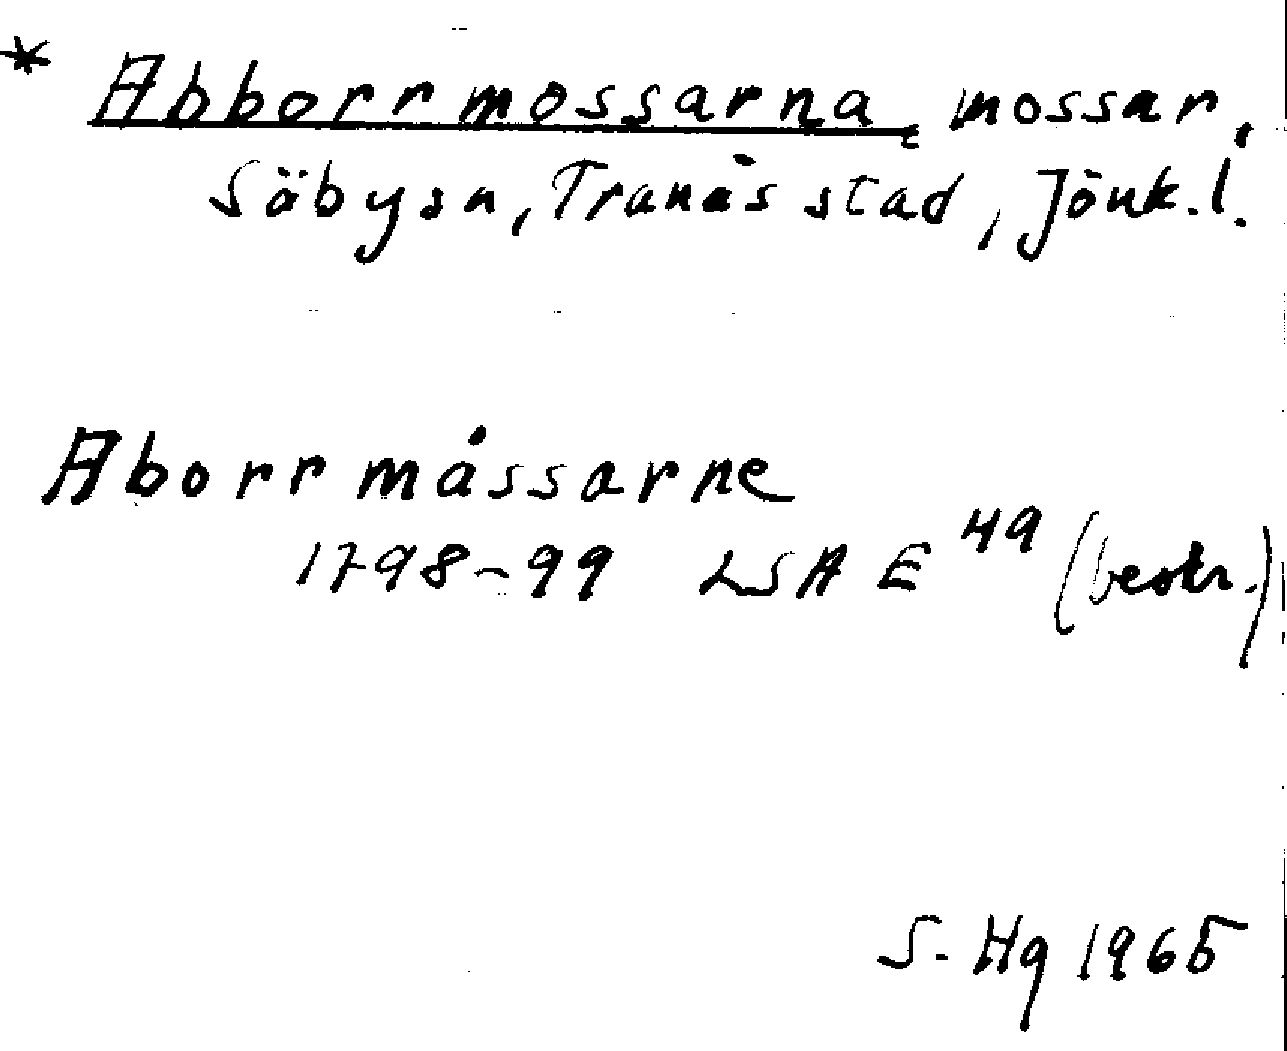 * Abborrmossarna, mossar,
Säbysn, Tranås stad, Jönk. l.
Aborrmåssarne
1798-99 LSA E 49 (beskr.)
S. Hg 1965